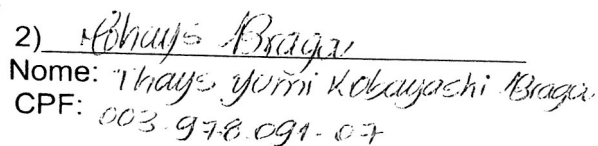 2) Thays Braga
Nome: Thays Yumi Kobayashi Braga
CPF: 003.978.091-07